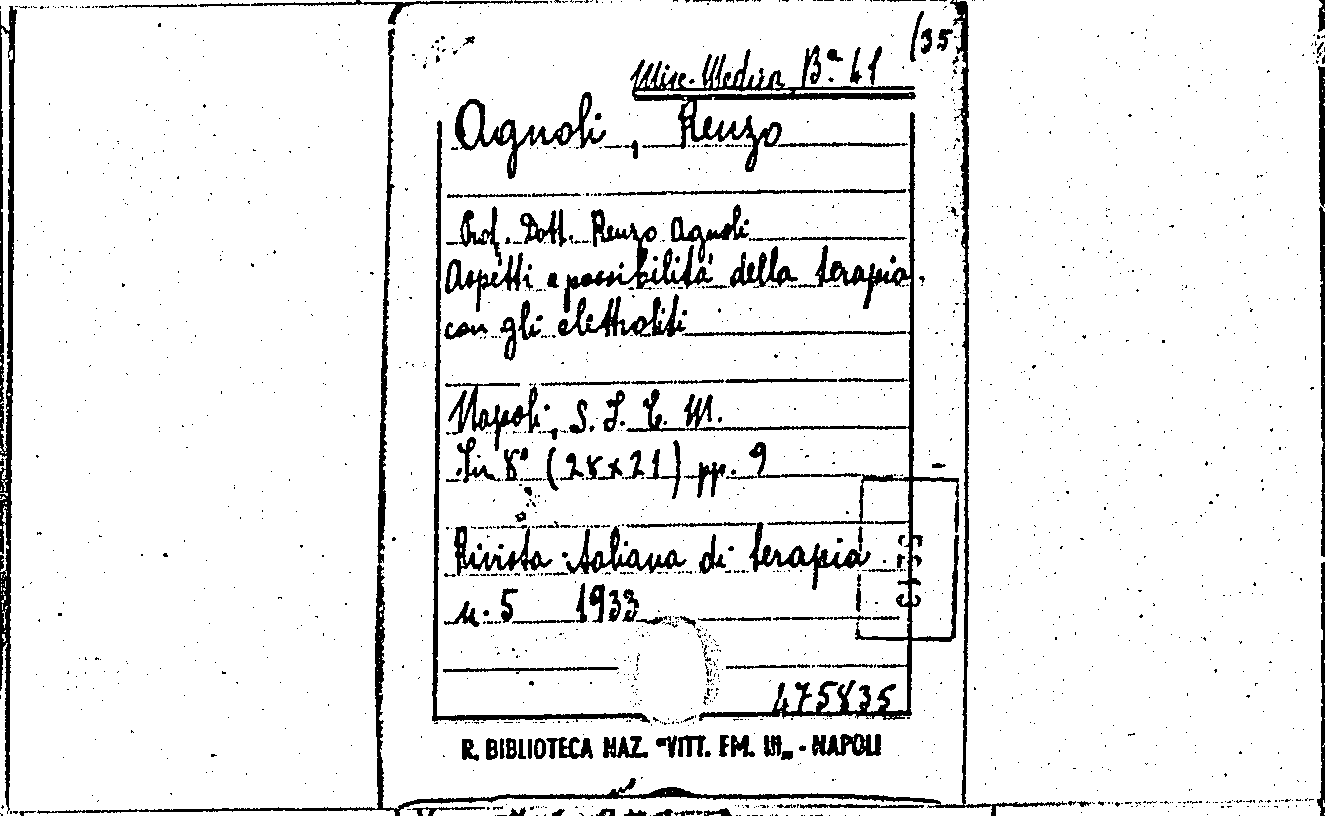 (35
Misc. Medica B.ª 41
Agnoli, Renzo
Prof. Dott. Renzo Agnoli
Aspetti e possibilità della terapia
con gli elettroliti
Napoli, S. I. E. M.
In 8° (28x21) pp. 9
Rivista italiana di terapia
n. 5 1933
475835
R. BIBLIOTECA NAZ. "VITT. EM. III„ - NAPOLI